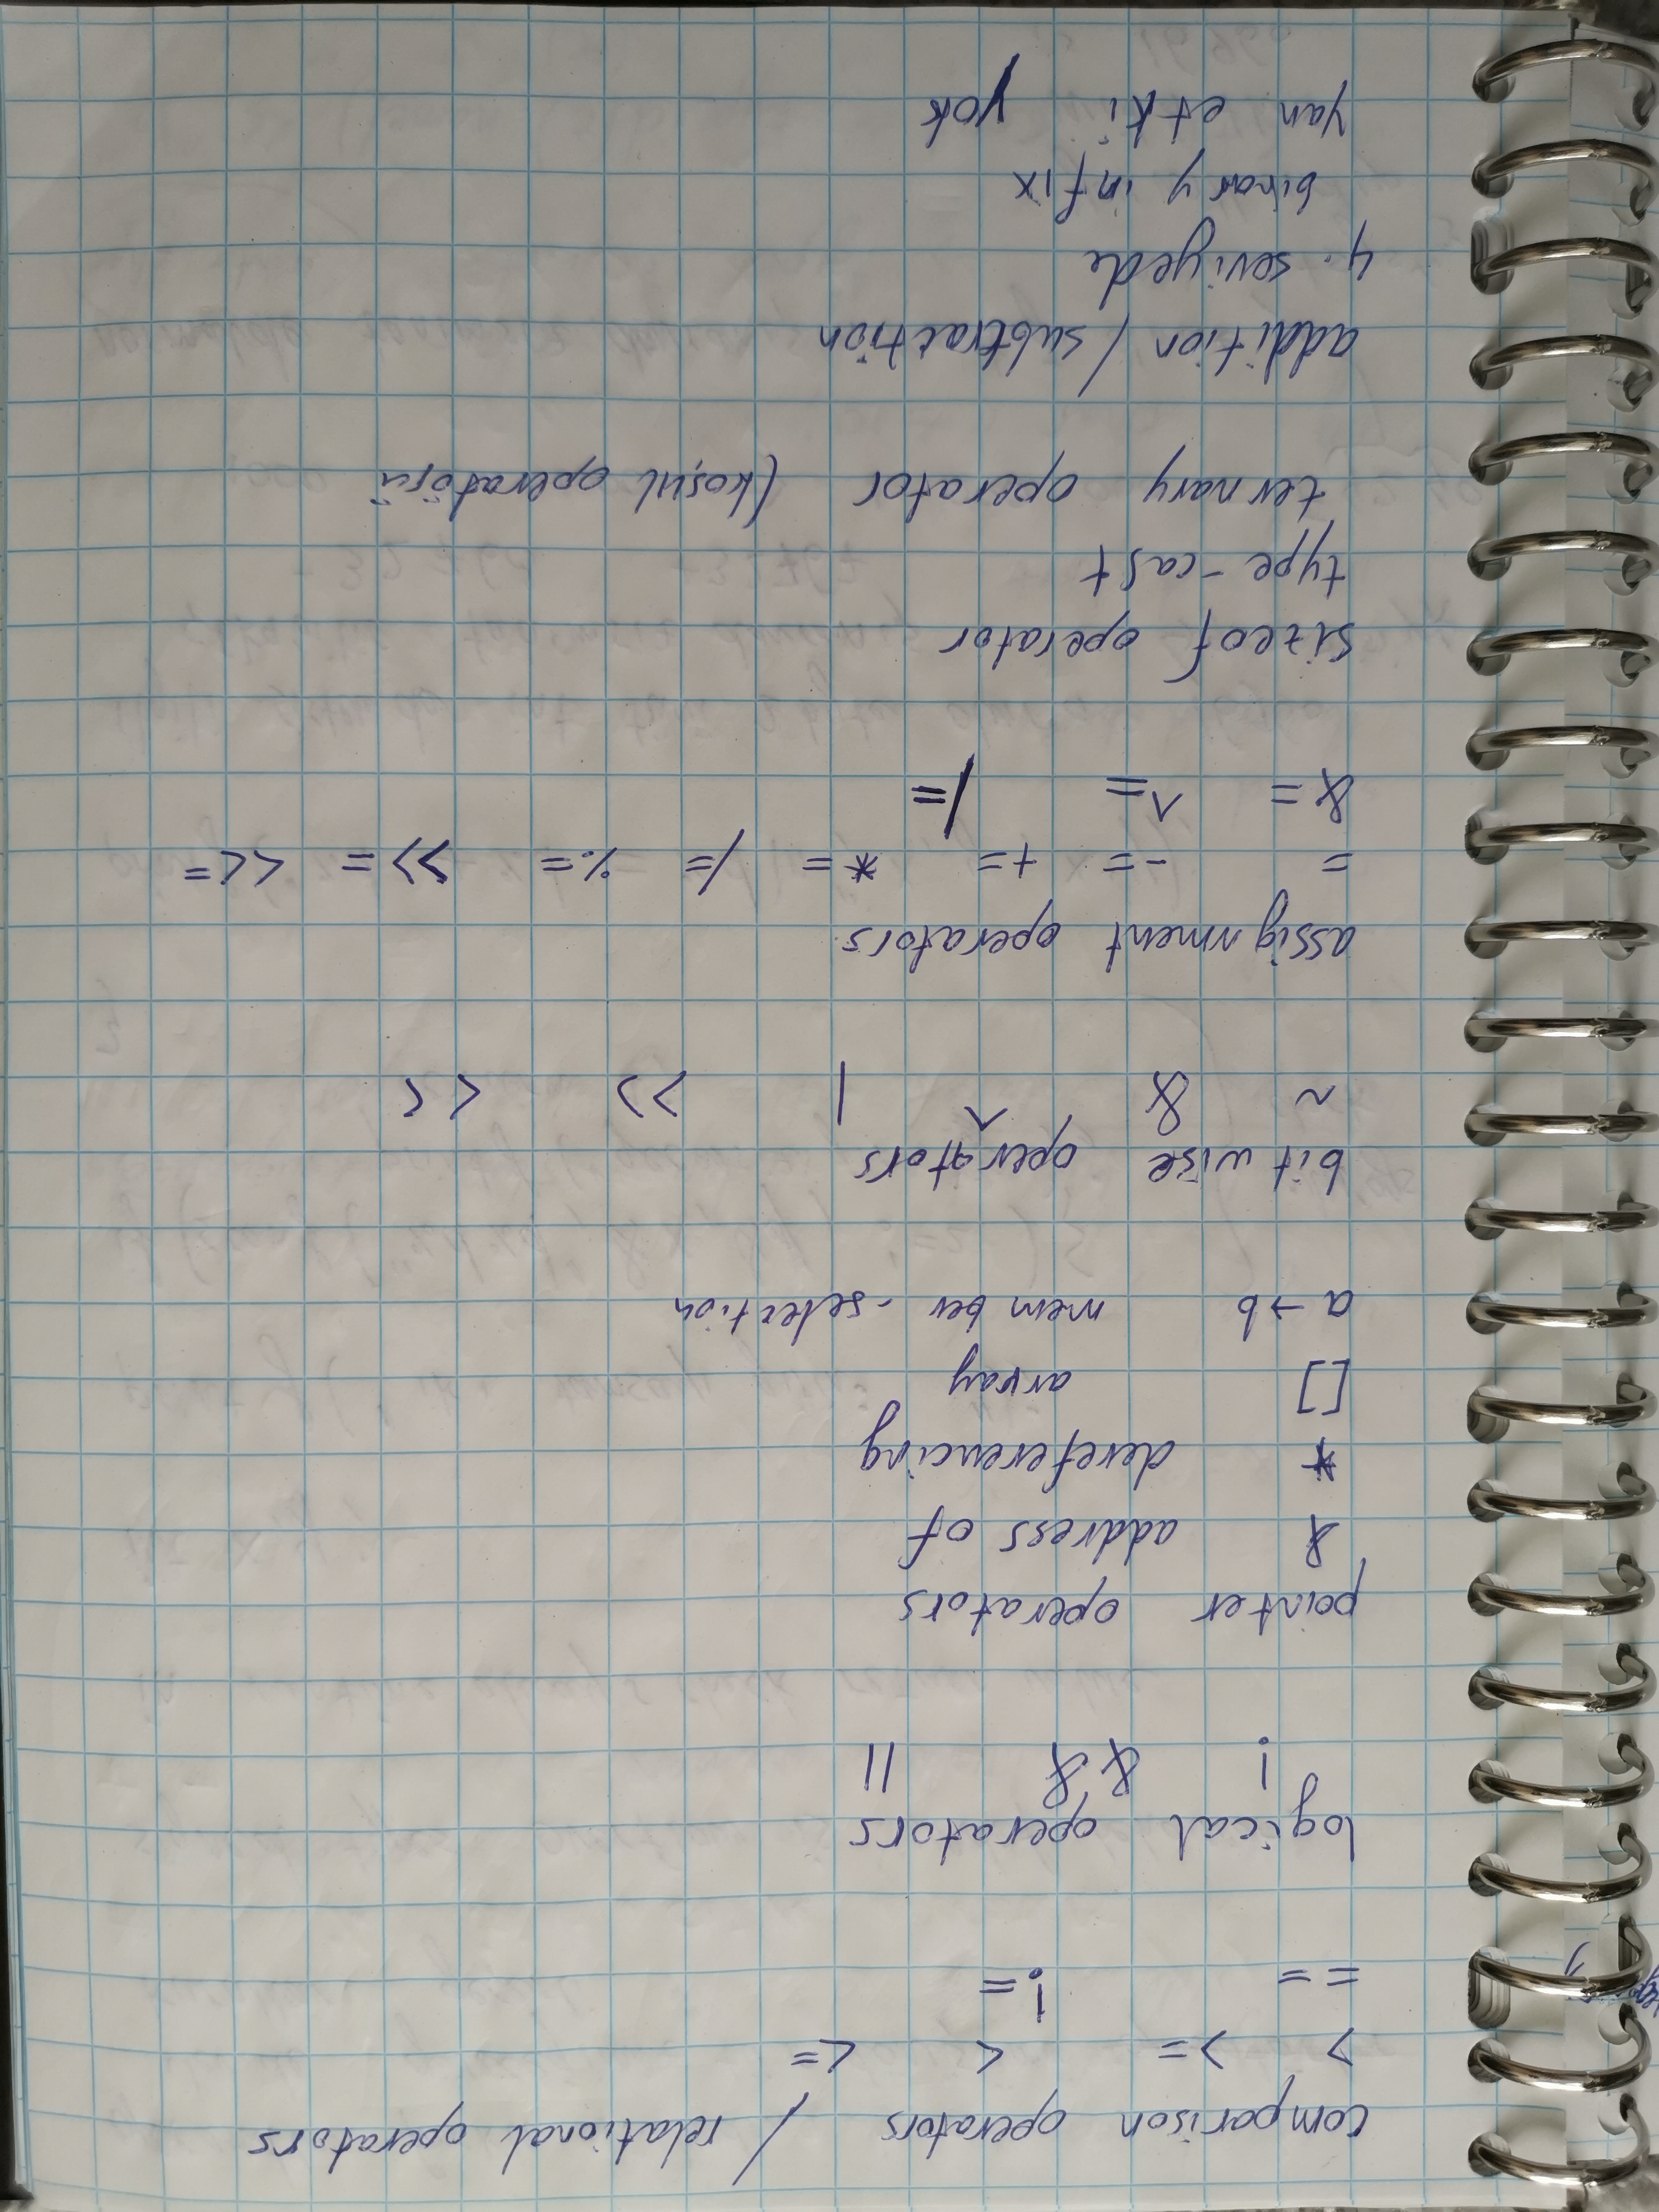 comparison operators / relational operators
> >= < <=
== !=
logical operators
! && ||
pointer operators
& address of
* dereferencing
[] array
a → b member - selection
bitwise operators
~ & ^ | >> <<
assignment operators
= -= += *= /= %= >>= <<=
&= ^= |=
sizeof operator
type-cast
ternary operator (koşul operatörü
addition / subtraction
4. seviyede
binary infix
yan etki yok